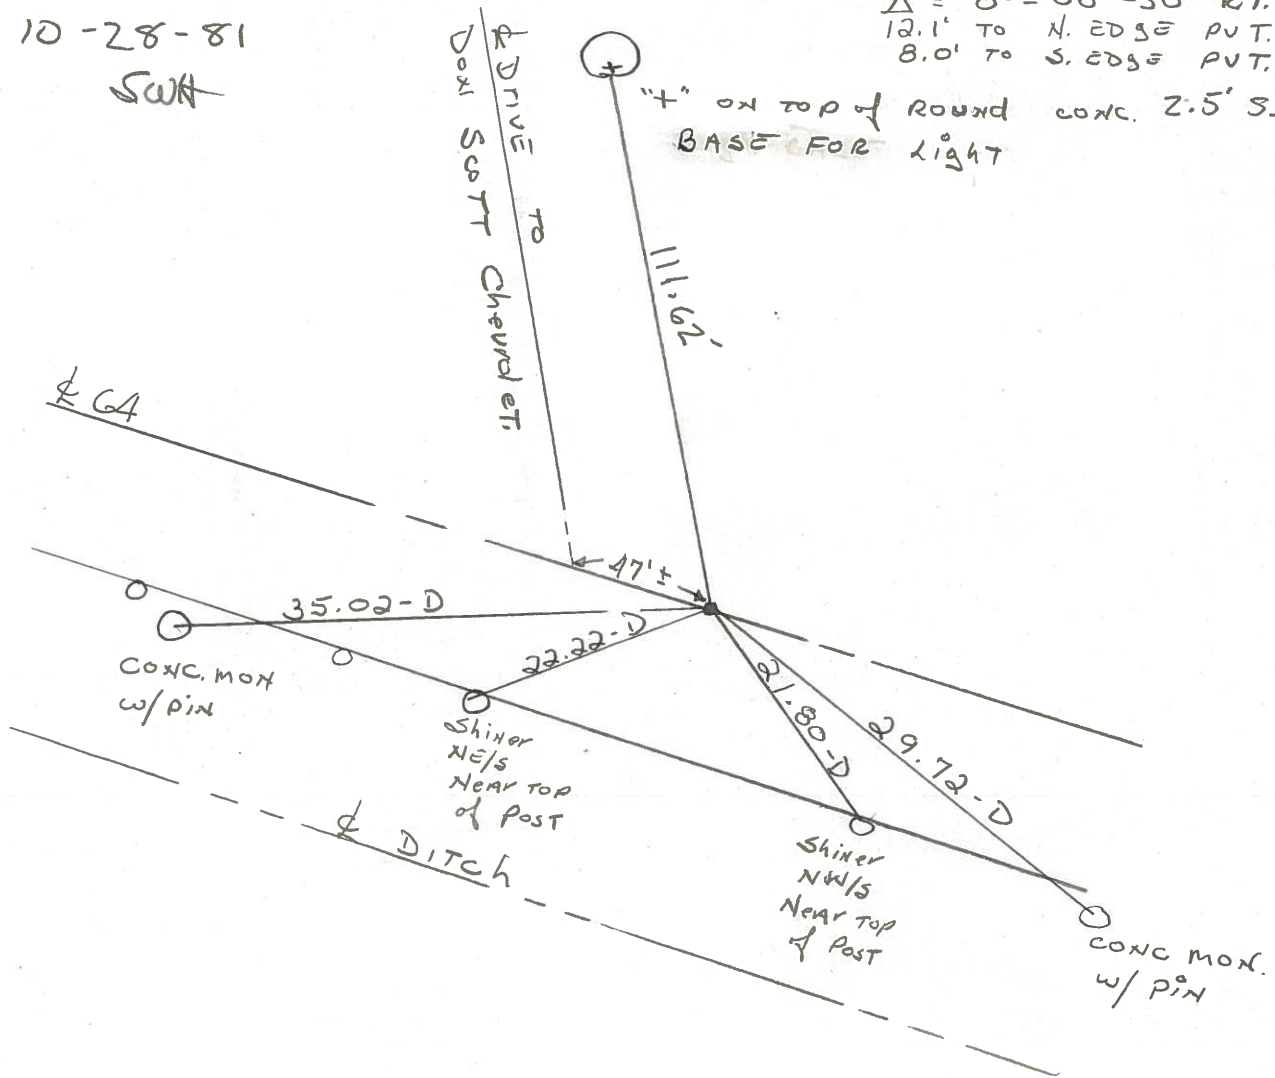 10-28-81
SWH
12.1' TO N. EDGE PVT.
8.0' TO S. EDGE PVT.
"+" ON TOP of ROUND CONC. 2.5' S.
BASE FOR Light
℄ DRIVE TO
DON SCOTT Chevrolet.
111.62'
℄ 64
47'±
35.02-D
22.22-D
21.80-D
29.72-D
CONC. MON
w/ PiN
Shiner
NE/S
Near TOP
of POST
Shiner
NW/S
Near TOP
of POST
CONC MON.
w/ PiN
℄ DITCh